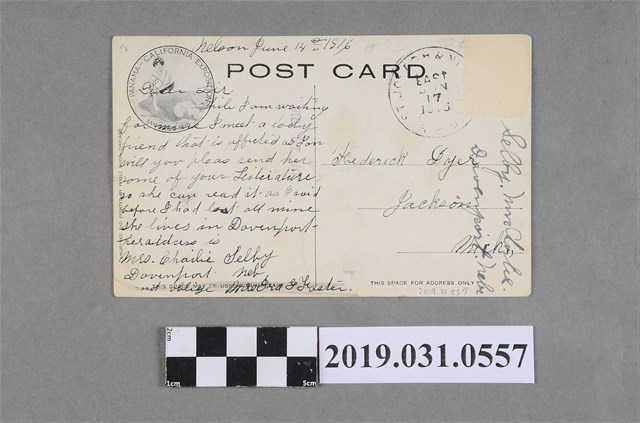 Nelson June 14th 1916
PANAMA-CALIFORNIA EXPOSITION
POST CARD
Dear Sir
While I am waiting
for I meet a lady
friend that is affected as I am
will you pleas send her
some of your Leiterature
so she can read it as I said
before I had lost all mine
she lives in Davenport
her address is
Mrs. Charlie Selby
Davenport Neb
Mrs Foster.
Frederick Dyer
Jackson
Mich
JUN
17
1916
Selby, Mrs Charlie.
Davenport, Nebr
THIS SPACE FOR ADDRESS ONLY
2019.31.557
2cm
1cm
5cm
2019.031.0557